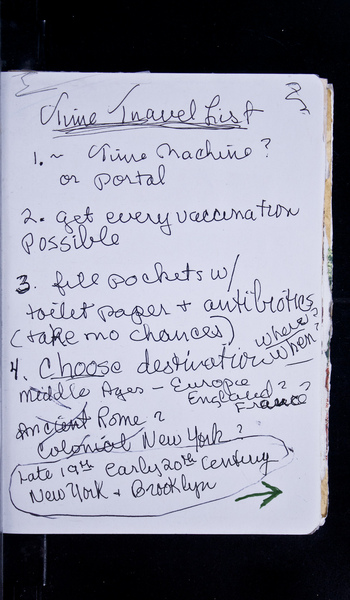 Time Travel List
1. ~ Time Machine?
or portal
2. get every vaccination
possible
3. fill pockets w/
toilet paper + antibiotics
(take no chances)
4. Choose destination where?
when?
Middle Ages – Europe
England?
France?
Ancient Rome?
Colonial New York?
Late 19th early 20th Century
New York + Brooklyn